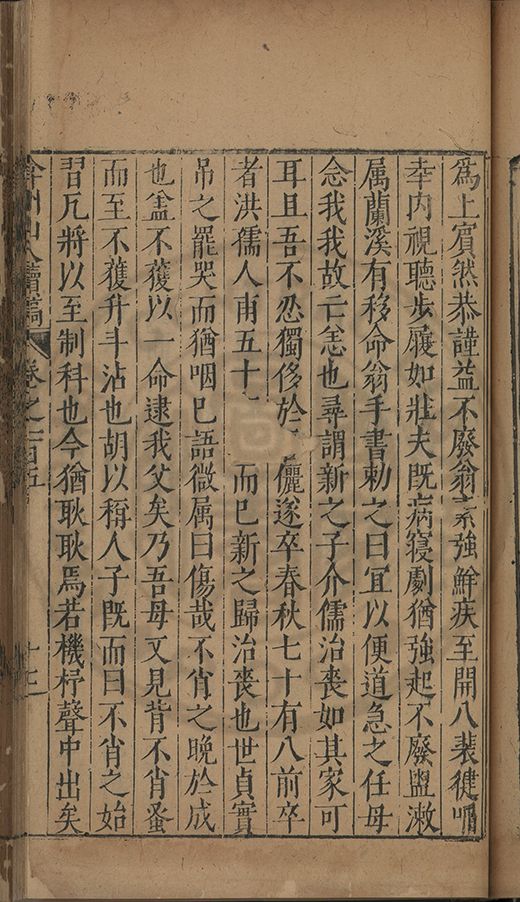 為上賓然恭謹益不廢翁素強鮮疾至開八袠健啗
幸內視聽步履如壯夫既病寢劇猶強起不廢盥漱
属蘭溪有移命翁手書勅之曰宜以便道急之任毋
念我我故亡恙也尋謂新之子介儒治喪如其家可
耳且吾不忍獨侈於儷遂卒春秋七十有八前卒
者洪孺人甫五十而已新之歸治喪也世貞實
吊之罷哭而猶咽已語微属曰傷哉不肖之晚於成
也盖不獲以一命逮我父矣乃吾母又見背不肖蚤
而至不獲升斗沾也胡以稱人子既而曰不肖之始
習凡將以至制科也今猶耿耿焉若機杼聲中出矣
弇州山人續稿 卷之一百五 十三